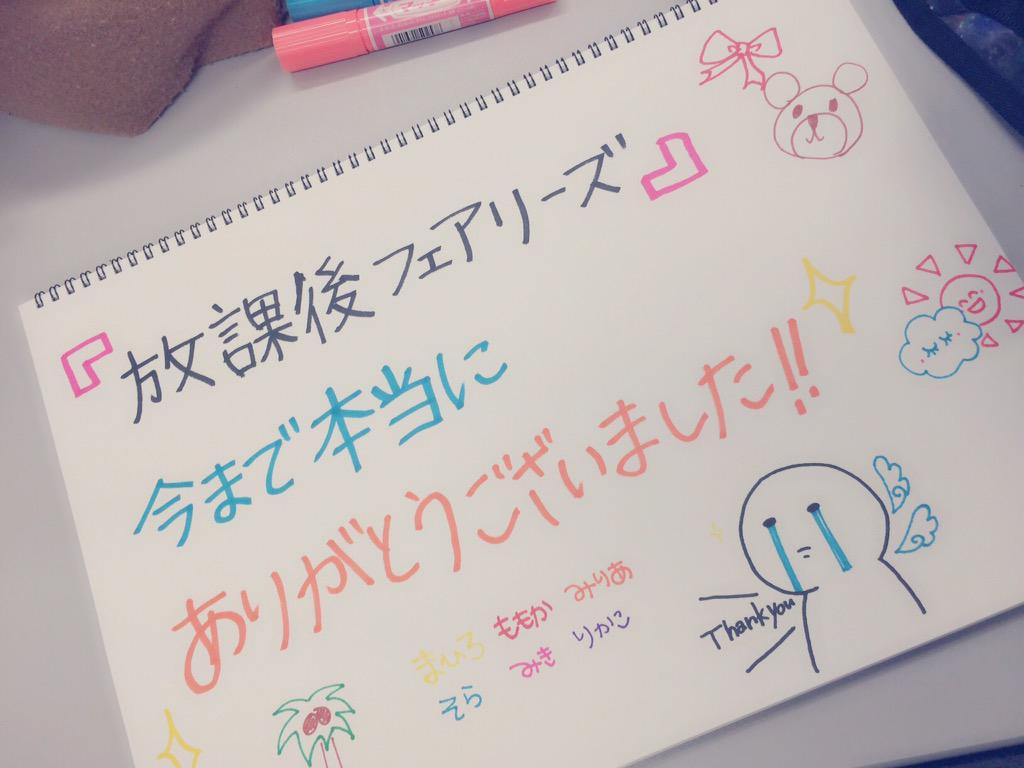 マッキー
『放課後フェアリーズ』
今まで本当に
ありがとうございました!!
まひろ ももか みりあ
そら みき りかこ
Thank you